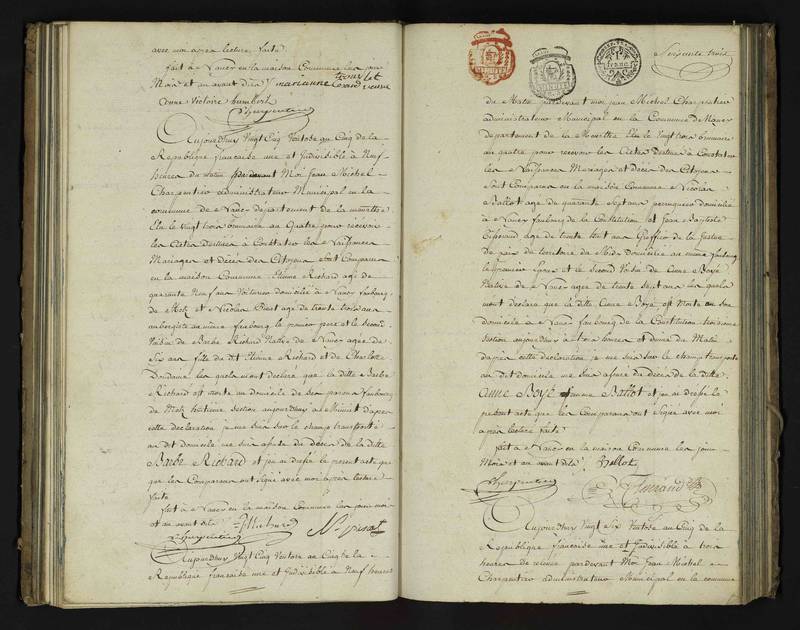 avec moi après lecture faite
fait à Nancy en la maison Commune les jour
Mois et an avant dits marianne
Anne Victoire humbert
JCharpentier
Aujourdhuy Vingt Cinq Ventose au Cinq de la
Republique francaise une et Indivisible à Neuf
heures du matin pardevant Moi Jean Michel
Charpentier administrateur Municipal en la
commune de Nancy departement de la meurthe
Elu le Vingt trois brumaire au Quatre pour recevoir
les Actes Destinés à Constater les Naissances
Mariages et décès des Citoyens sont Comparus
en la maison Commune Etienne Richard age de
quarante Neuf ans Voiturier domicilié à Nancy faubourg
de Metz et Nicolas Pierot agé de trente trois ans
aubergiste au même faubourg le premier pere et le second
Voisin de Barbe Richard Native de Nancy agée de
Six ans fille dudit Etienne Richard et de Charlotte
les quels m'ont déclaré que la ditte Barbe
Richard est morte au domicile de ses parens faubourg
de Metz huitieme section aujourdhuy à Minuit d'apres
cette declaration je me suis sur le champ transporté
au dit domicile me suis assuré du décès de la ditte
Barbe Richard et j'en ai dressé le present acte que
que les Comparans ont signé avec moi apres lecture
faite
fait à Nancy en la maison Commune les jour mois
et an avant dits
JCharpentier
Aujourdhuy Vingt Cinq Ventose au Cinq de la
Republique francaise une et Indivisible à Neuf heures
Soixante trois
du Matin pardevant moi Jean Michel Charpentier
administrateur Municipal en la Commune de Nancy
departement de la Meurthe Elu le Vingt trois brumaire
au quatre pour recevoir les Actes Destinés à Constater
les Naissances Mariages et décès des Citoyens
sont Comparus en la maison Commune Nicolas
Ballot agé de quarante Sept ans perruquier domicilié
à Nancy faubourg de la Constitution et Jean Baptiste
age de trente huit ans Greffier de la Justice
de paix du territoire du Midy Domicilié au meme faubourg
le premier Epoux et le second Voisin de Anne Boyé
Native de Nancy agée de trente Sept ans les quels
m'ont declaré que la ditte Anne Boyé est Morte en son
domicile à Nancy faubourg de la Constitution troisieme
Section aujourdhuy à trois heures et demie du Matin
d'après cette declaration je me suis sur le champ transporté
au dit domicile me suis assuré du décès de la ditte
Anne Boyé femme Ballot et j'en ai dressé le
present acte que les Comparans ont Signé avec moi
apres lecture faite
fait à Nancy en la maison Commune les jour
Mois et an avant dits Ballot
JCharpentier
Aujourdhuy Vingt Six Ventose au Cinq de la
Republique francaise une et Indivisible à trois
heures de relevée pardevant Moi Jean Michel
Charpentier administrateur Municipal en la commune